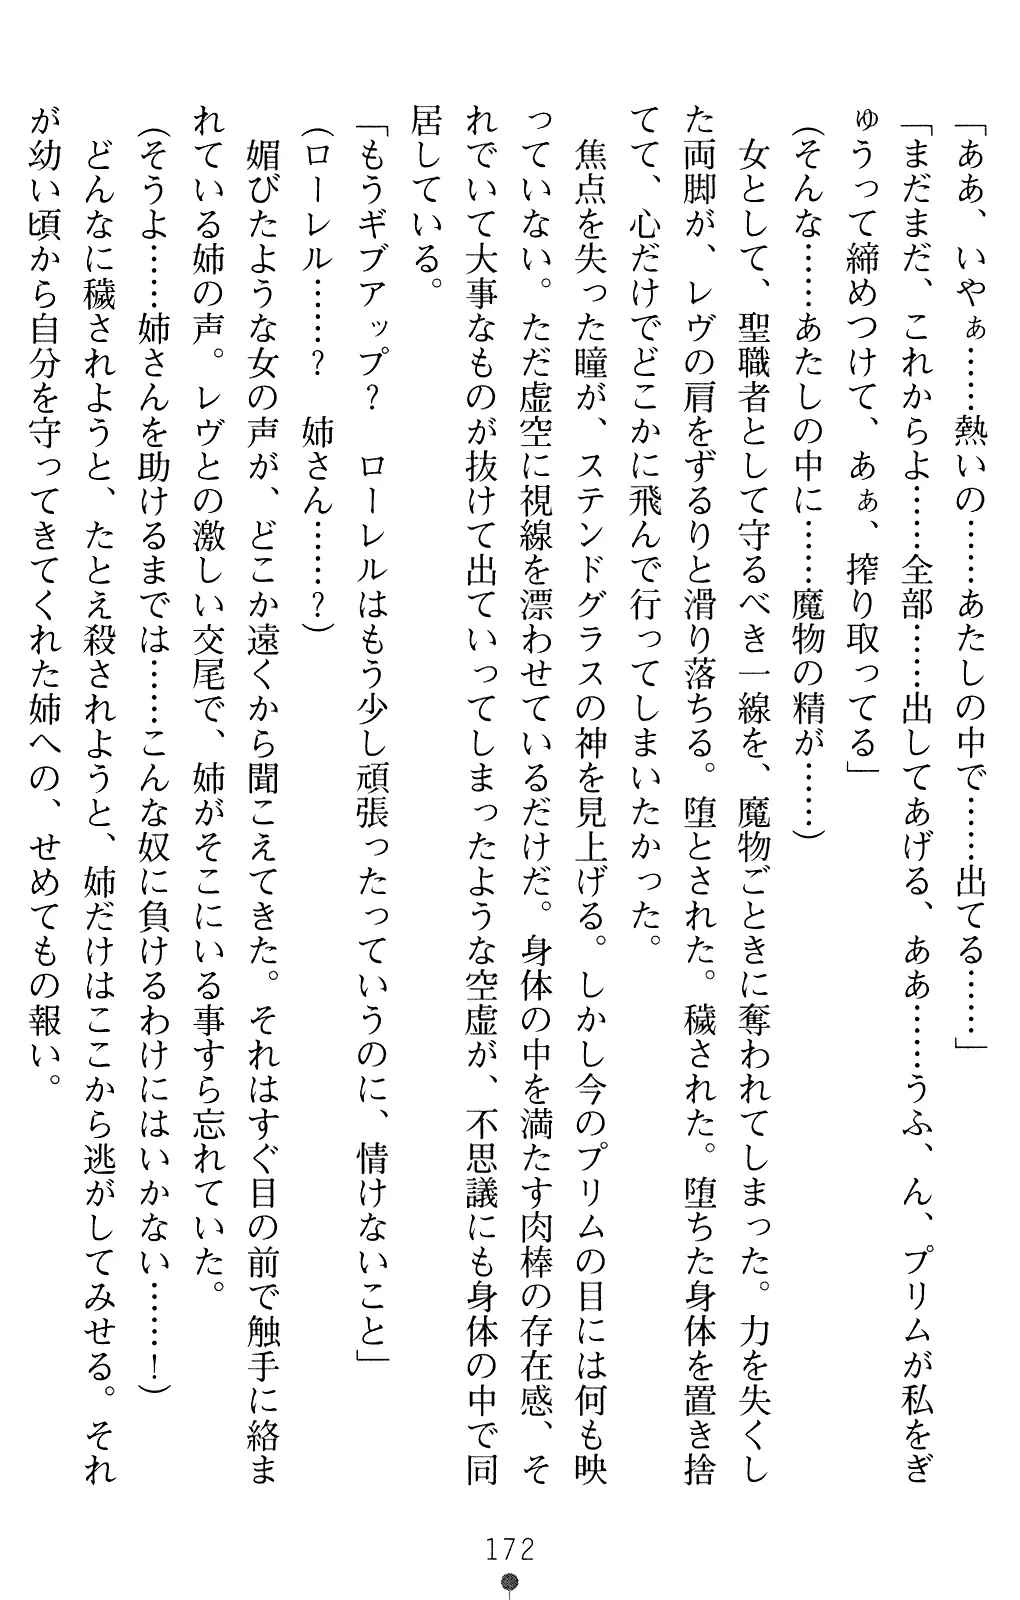 「ああ、いやぁ……熱いの……あたしの中で……出てる……」
「まだまだ、これからよ……全部……出してあげる、ああ……うふ、ん、プリムが私をぎ
ゅうって締めつけて、あぁ、搾り取ってる」
(そんな……あたしの中に……魔物の精が……)
女として、聖職者として守るべき一線を、魔物ごときに奪われてしまった。力を失くし
た両脚が、レヴの肩をずるりと滑り落ちる。堕とされた。穢された。堕ちた身体を置き捨
てて、心だけでどこかに飛んで行ってしまいたかった。
焦点を失った瞳が、ステンドグラスの神を見上げる。しかし今のプリムの目には何も映
っていない。ただ虚空に視線を漂わせているだけだ。身体の中を満たす肉棒の存在感、そ
れでいて大事なものが抜けて出ていってしまったような空虚が、不思議にも身体の中で同
居している。
「もうギブアップ? ローレルはもう少し頑張ったっていうのに、情けないこと」
(ローレル……? 姉さん……?)
媚びたような女の声が、どこか遠くから聞こえてきた。それはすぐ目の前で触手に絡ま
れている姉の声。レヴとの激しい交尾で、姉がそこにいる事すら忘れていた。
(そうよ……姉さんを助けるまでは……こんな奴に負けるわけにはいかない……!)
どんなに穢されようと、たとえ殺されようと、姉だけはここから逃がしてみせる。それ
が幼い頃から自分を守ってきてくれた姉への、せめてもの報い。
172